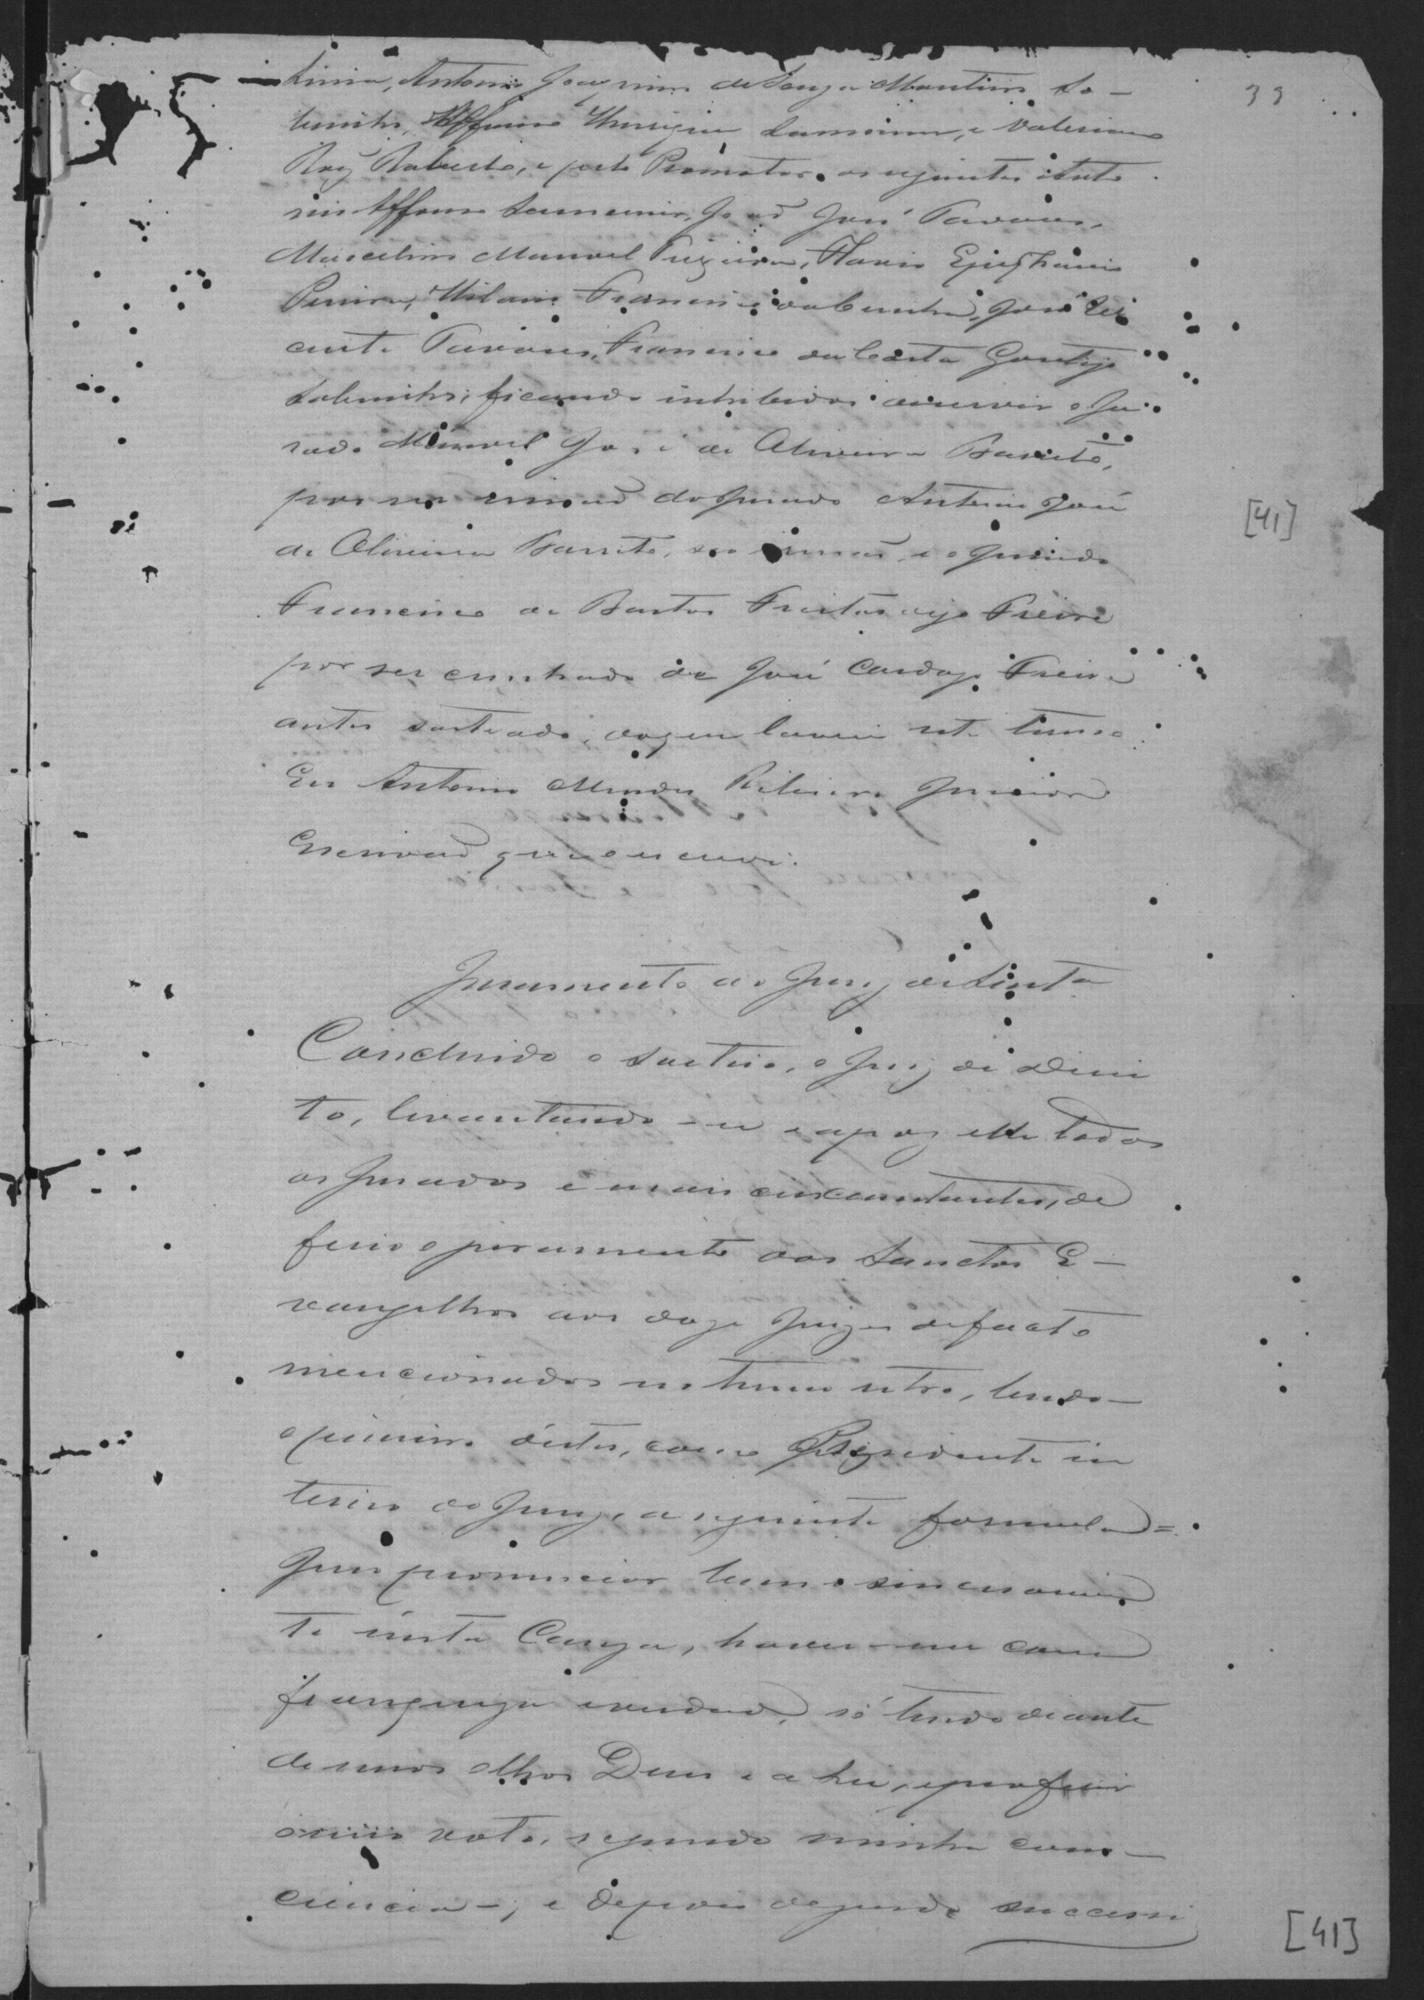 Lima, Antonio Joaquim de Souza Martins So-
brinho, Affonso Lamounier, e Valeriano
Roiz Rabello, e pelo Promotor os seguintes: Anto
nio Affonso Lamounier, João José Tavares,
Marcelino Manoel Teixeira, Flavio Epiphanio
Pereira, Hilario Francisco da Cunha, José Vi
cente Tavares, Francisco da Costa Gontijo
Sobrinho; ficando inhibidos de servir o Ju
rado Manoel José de Oliveira Barreto,
por ser irmão do Jurado Antonio José
de Oliveira Barreto, seo irmão, e o Jurado
Francisco de Bastos Freitas digo Freire
por ser cunhado de José Cardoso Freire
antes sorteado, do que lavrei este termo.
Eu Antonio Mendes Ribeiro Junior
Escrivão que o escrevi.
Juramento do Jury de Senta
Concluido o sorteio, o Juiz de Direi
to, levantando-se e apoz elle todos
os Jurados e mais circumstantes, de
ferio o juramento aos Sanctos E-
vangelhos aos doze Juizes de facto
mencionados no termo retro, lendo-
o primeiro destes, como Presidente in
terino do Jury, a seguinte formula =
Juro pronunciar bem e sinceramen
te nesta Causa, haver-me com
franqueza e verdade, só tendo deante
de meos olhos Deus e a Lei, e proferir
o meo voto, segundo minha cons-
ciencia -; e depois dizendo successi
39
[41]
[41]